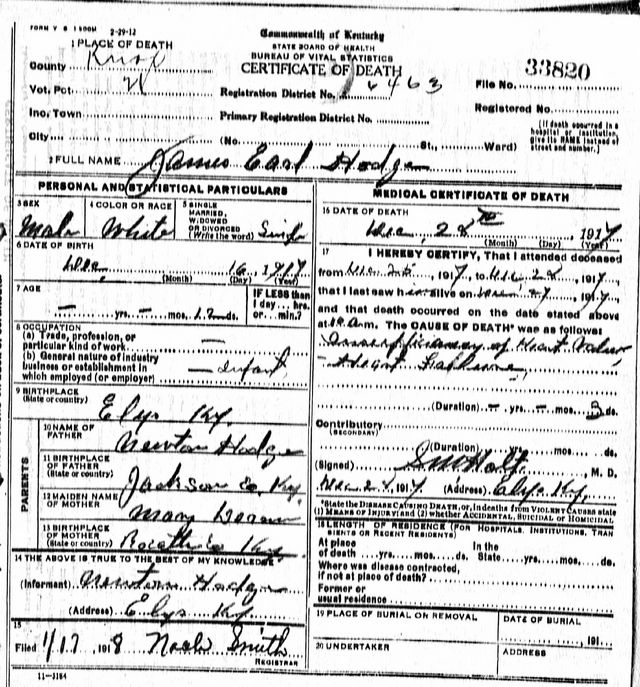 FORM V S 1 500M 2-29-12
1 PLACE OF DEATH
Commonwealth of Kentucky
STATE BOARD OF HEALTH
BUREAU OF VITAL STATISTICS
CERTIFICATE OF DEATH
County Knox
Vot. Pct
Registration District No. 6463
File No. 33820
Inc. Town
Primary Registration District No.
Registered No.
City (No. St., Ward)
[If death occurred in a hospital or institution, give its NAME instead of street and number.]
2 FULL NAME James Earl Hodge
PERSONAL AND STATISTICAL PARTICULARS
3 SEX Male
4 COLOR OR RACE White
5 SINGLE MARRIED, WIDOWED OR DIVORCED (Write the word) Single
6 DATE OF BIRTH
Dec, 16, 1917
(Month) (Day) (Year)
7 AGE
— yrs. — mos. 12 ds.
IF LESS than 1 day... hrs. or min.?
8 OCCUPATION
(a) Trade, profession, or particular kind of work —
(b) General nature of industry business or establishment in which employed (or employer) — Infant
9 BIRTHPLACE (State or country) Elys Ky.
PARENTS
10 NAME OF FATHER Newton Hodge
11 BIRTHPLACE OF FATHER (State or country) Jackson Co. Ky
12 MAIDEN NAME OF MOTHER Mary
13 BIRTHPLACE OF MOTHER (State or country) Ky
14 THE ABOVE IS TRUE TO THE BEST OF MY KNOWLEDGE
(Informant) Newton Hodge
(Address) Elys Ky
15
Filed 1/17 1918 Smith
REGISTRAR
11-3184
MEDICAL CERTIFICATE OF DEATH
16 DATE OF DEATH
Dec, 28th 1917
(Month) (Day) (Year)
17 I HEREBY CERTIFY, That I attended deceased
from Dec 25, 1917, to Dec 28, 1917
that I last saw h alive on Dec 27, 1917,
and that death occurred on the date stated above
at a.m. The CAUSE OF DEATH* was as follows:
Insufficiency of Heart Valves
Heart
(Duration) — yrs. — mos. 3 ds.
Contributory
(SECONDARY)
(Duration) yrs. mos. ds.
(Signed) S M Holt, M. D.
Dec 28, 1917 (Address) Elys Ky.
*State the DISEASE CAUSING DEATH, or, in deaths from VIOLENT CAUSES state
(1) MEANS OF INJURY; and (2) whether ACCIDENTAL, SUICIDAL or HOMICIDAL
18 LENGTH OF RESIDENCE (FOR HOSPITALS, INSTITUTIONS, TRANSIENTS OR RECENT RESIDENTS)
At place of death yrs. mos. ds. In the State yrs. mos. ds.
Where was disease contracted, if not at place of death?
Former or usual residence
19 PLACE OF BURIAL OR REMOVAL
DATE OF BURIAL
, 191
20 UNDERTAKER
ADDRESS